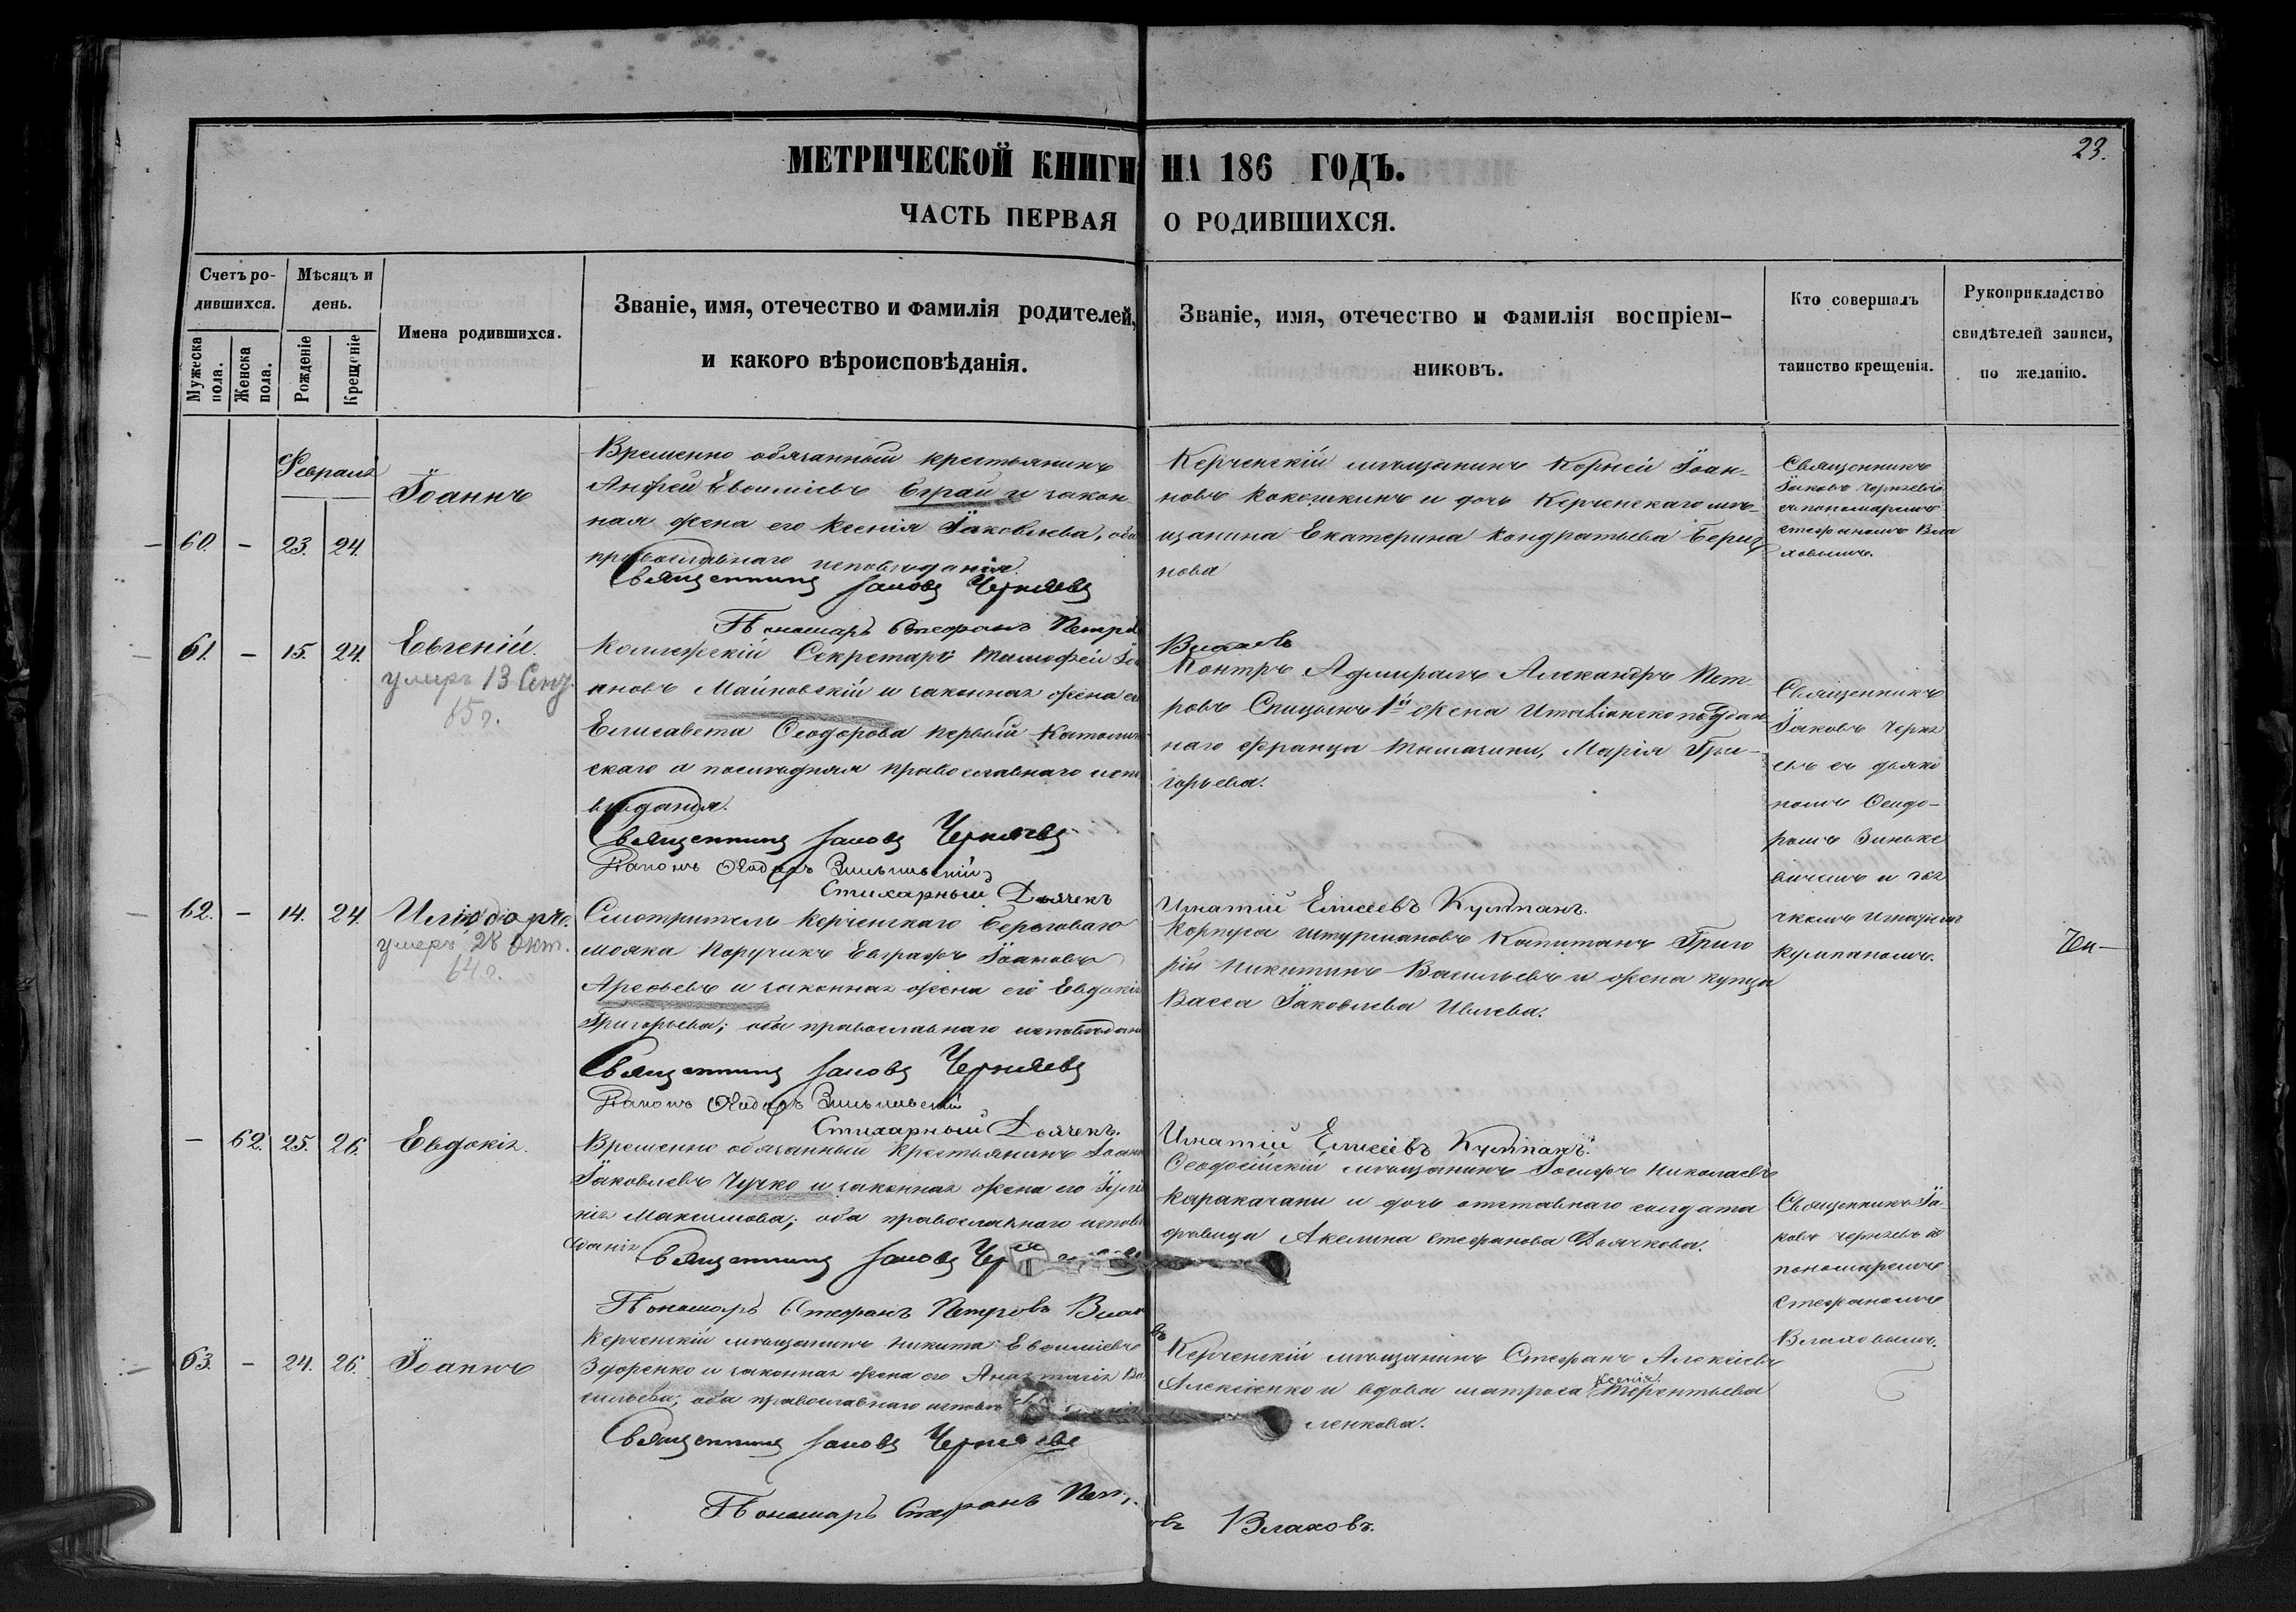 23.
МЕТРИЧЕСКОЙ КНИГИ НА 186 ГОДЪ.
ЧАСТЬ ПЕРВАЯ О РОДИВШИХСЯ.
Счетъ ро-
дившихся.
Мужеска пола.
Женска пола.
Мѣсяцъ и
день.
Рожденіе
Крещеніе
Имена родившихся.
Званіе, имя, отечество и фамилія родителей,
и какого вѣроисповѣданія.
Званіе, имя, отечество и фамилія воспріем-
никовъ.
Кто совершалъ
таинство крещенія.
Рукоприкладство
свидѣтелей записи,
по желанію.
Февраль
60. - 23. 24.
Іоаннъ
Временно обязанный крестьянинъ
Андрей Евфиміевъ и закон
ная жена его Ксенія Іаковлева, оба
православнаго исповѣданія.
Священникъ Іаковъ Черняевъ
Пономарь Стефанъ Петровъ
Влаховъ
Керченскій мѣщанинъ Корней Іоан-
новъ Кокошкинъ и дочь Керченскаго мѣ-
щанина Екатерина Кондратьева
нова
Священникъ
Іаковъ Черняевъ
съ пономаремъ
Стефаномъ Вла
ховымъ.
61. - 15. 24.
Евгеній.
умеръ 13 Сент.
65 г.
Коллежскій Секретарь Тимофей Іо
анновъ Майновскій и законная жена его
Елисавета Ѳеодорова первый Католиче
скаго а послѣдняя православнаго испо
вѣданія.
Священникъ Іаковъ Черняевъ
Діаконъ Ѳеодоръ
Стихарный Дьячекъ
Игнатій Елисеевъ Кулпанъ.
Контръ Адмиралъ Александръ Пет-
ровъ Спицынъ 1й жена Италіанскоподдан
наго Франца Томазини, Марія Гри-
горьева.
Священникъ
Іаковъ Черня
евъ съ діако
номъ Ѳеодо-
ромъ Зиньке
вичемъ и дья
чкомъ Игнатіемъ
Кулпаномъ.
62. - 14. 24.
Иліодоръ.
умеръ 28 Окт.
64 г.
Смотритель Керченскаго Береговаго
маяка Поручикъ Евграфъ Іоанновъ
Арсеьевъ и законная жена его Евдокія
Григорьева; оба православнаго исповѣдан
Священникъ Іаковъ Черняевъ
Діаконъ Ѳеодоръ
Стихарный Дьячекъ.
Игнатій Елисеевъ Кулпанъ.
Корпуса штурмановъ Капитанъ Григо
рій Никитинъ Васильевъ и жена купца
Васса Іаковлева Ивлева.
- 62. 25. 26.
Евдокія.
Временно обязанный крестьянинъ Іоаннъ
Іаковлевъ Чучко и законная жена его
нія Максимова; оба православнаго исповѣ
данія
Священникъ Іаковъ
Пономарь Стефанъ Петровъ Влахо
въ
Ѳеодосійскій мѣщанинъ Іосифъ Николаевъ
Каракачани и дочь отставнаго солдата
дѣвица Акелина Стефанова Дьячкова.
Священникъ Іа-
ковъ Черняевъ съ
пономаремъ
Стефаномъ
Влаховымъ.
63. - 24. 26.
Іоаннъ
Керченскій мѣщанинъ Никита Евфиміевъ
Здоренко и законная жена его Анастасія Ва
сильева; оба православнаго исповѣ
Священникъ Іаковъ Черняевъ
Пономарь Стефанъ Петр
овъ Влаховъ.
Керченскій мѣщанинъ Стефанъ Алексіевъ
Алексіенко и вдова матроса Ксенія Терентьева
ленкова.